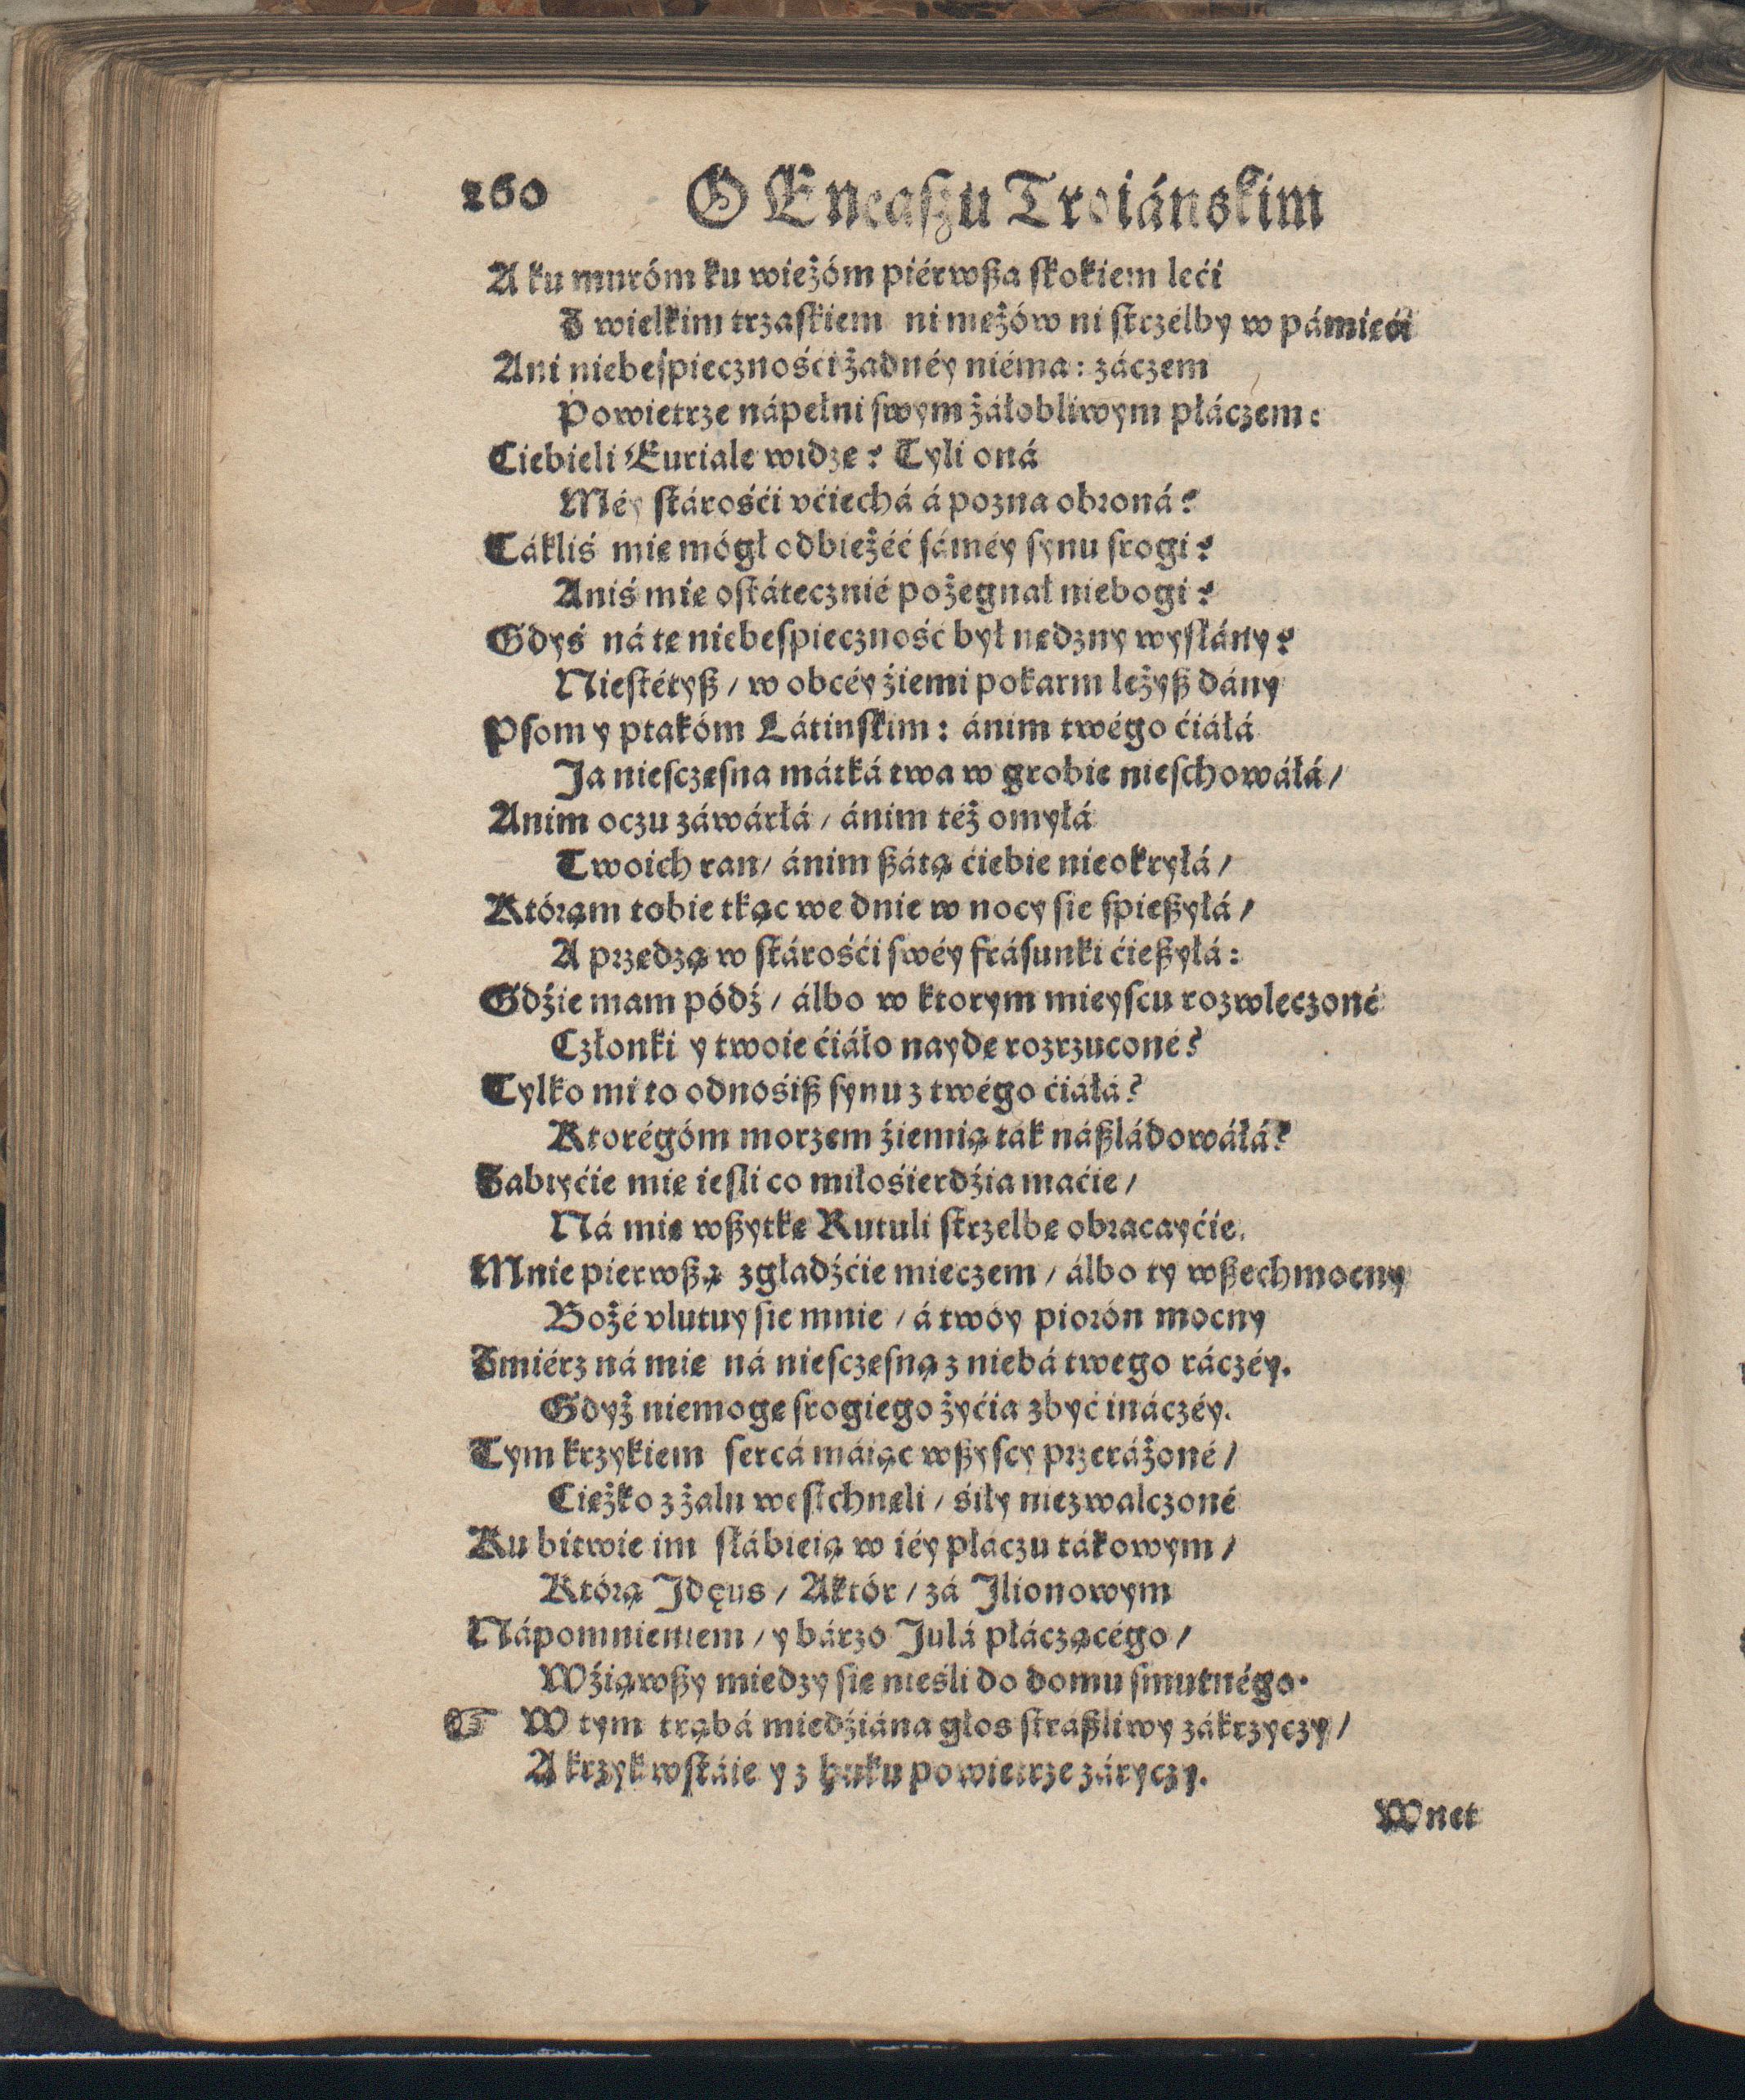 260 O Eneaſzu Troiánskim
A ku muróm ku wieżóm piérwßa ſkokiem leći
Z wielkim trzaſkiem ni mężów ni ſtrzélby w pámięći
Ani niebeſpiecznośći żadnéy niéma: záczem
Powietrze nápełni ſwym żáłobliwym płáczem:
Ciebieli Euriale widzę? Tyli oná
Méy ſtárośći vćiechá á pozna obroná?
Tákliś mię mógł odbieżéć ſáméy ſynu ſrogi?
Aniś mię oſtátecznié pożegnał niebogi?
Gdyś ná tę niebeſpieczność był nędzny wyſłány?
Nieſtétyß / w obcéy źiemi pokarm leżyß dány
Pſom y ptakóm Látinſkim: ánim twégo ćiáłá
Ja nieſczęſna mátká twa w grobie nieſchowáłá /
Anim oczu záwárłá / ánim téż omyłá
Twoich ran / ánim ßátą ćiebie nieokryłá /
Którąm tobie tkąc we dnie w nocy ſie ſpießyłá /
A przędzą w ſtárośći ſwéy fráſunki ćießyłá:
Gdźie mam pódź / álbo w ktorym mieyſcu rozwleczoné
Członki y twoie ćiáło naydę rozrzuconé?
Tylko mi to odnośiß ſynu z twégo ćiáłá?
Ktorégóm morzem źiemią ták náßládowáłá?
Zabiyćie mię ieſli co miłośierdźia maćie /
Ná mię wßytkę Rutuli ſtrzelbę obracayćie.
Mnie pierwßą zgładźćie mieczem / álbo ty wßechmocny
Bożé vlutuy ſie mnie / á twóy piorón mocny
Zmiérz ná mię ná nieſczęſną z niebá twego ráczéy.
Gdyż niemogę ſrogiego żyćia zbyć ináczéy.
Tym krzykiem ſercá máiąc wßyſcy przeráżoné /
Ciężko z żalu weſtchnęli / śiły niezwalczoné
Ku bitwie im ſłábieią w iéy płáczu tákowym /
Którą Jdęus / Aktór / zá Jlionowym
Nápomnieniem / y bárzo Julá płáczącégo /
Wźiąwßy miedzy ſię nieśli do domu ſmutnégo.
☞ W tym trąbá miedźiána głos ſtráßliwy zákrzyczy /
A krzyk wſtáie y z huku powietrze záryczy.
Wnet